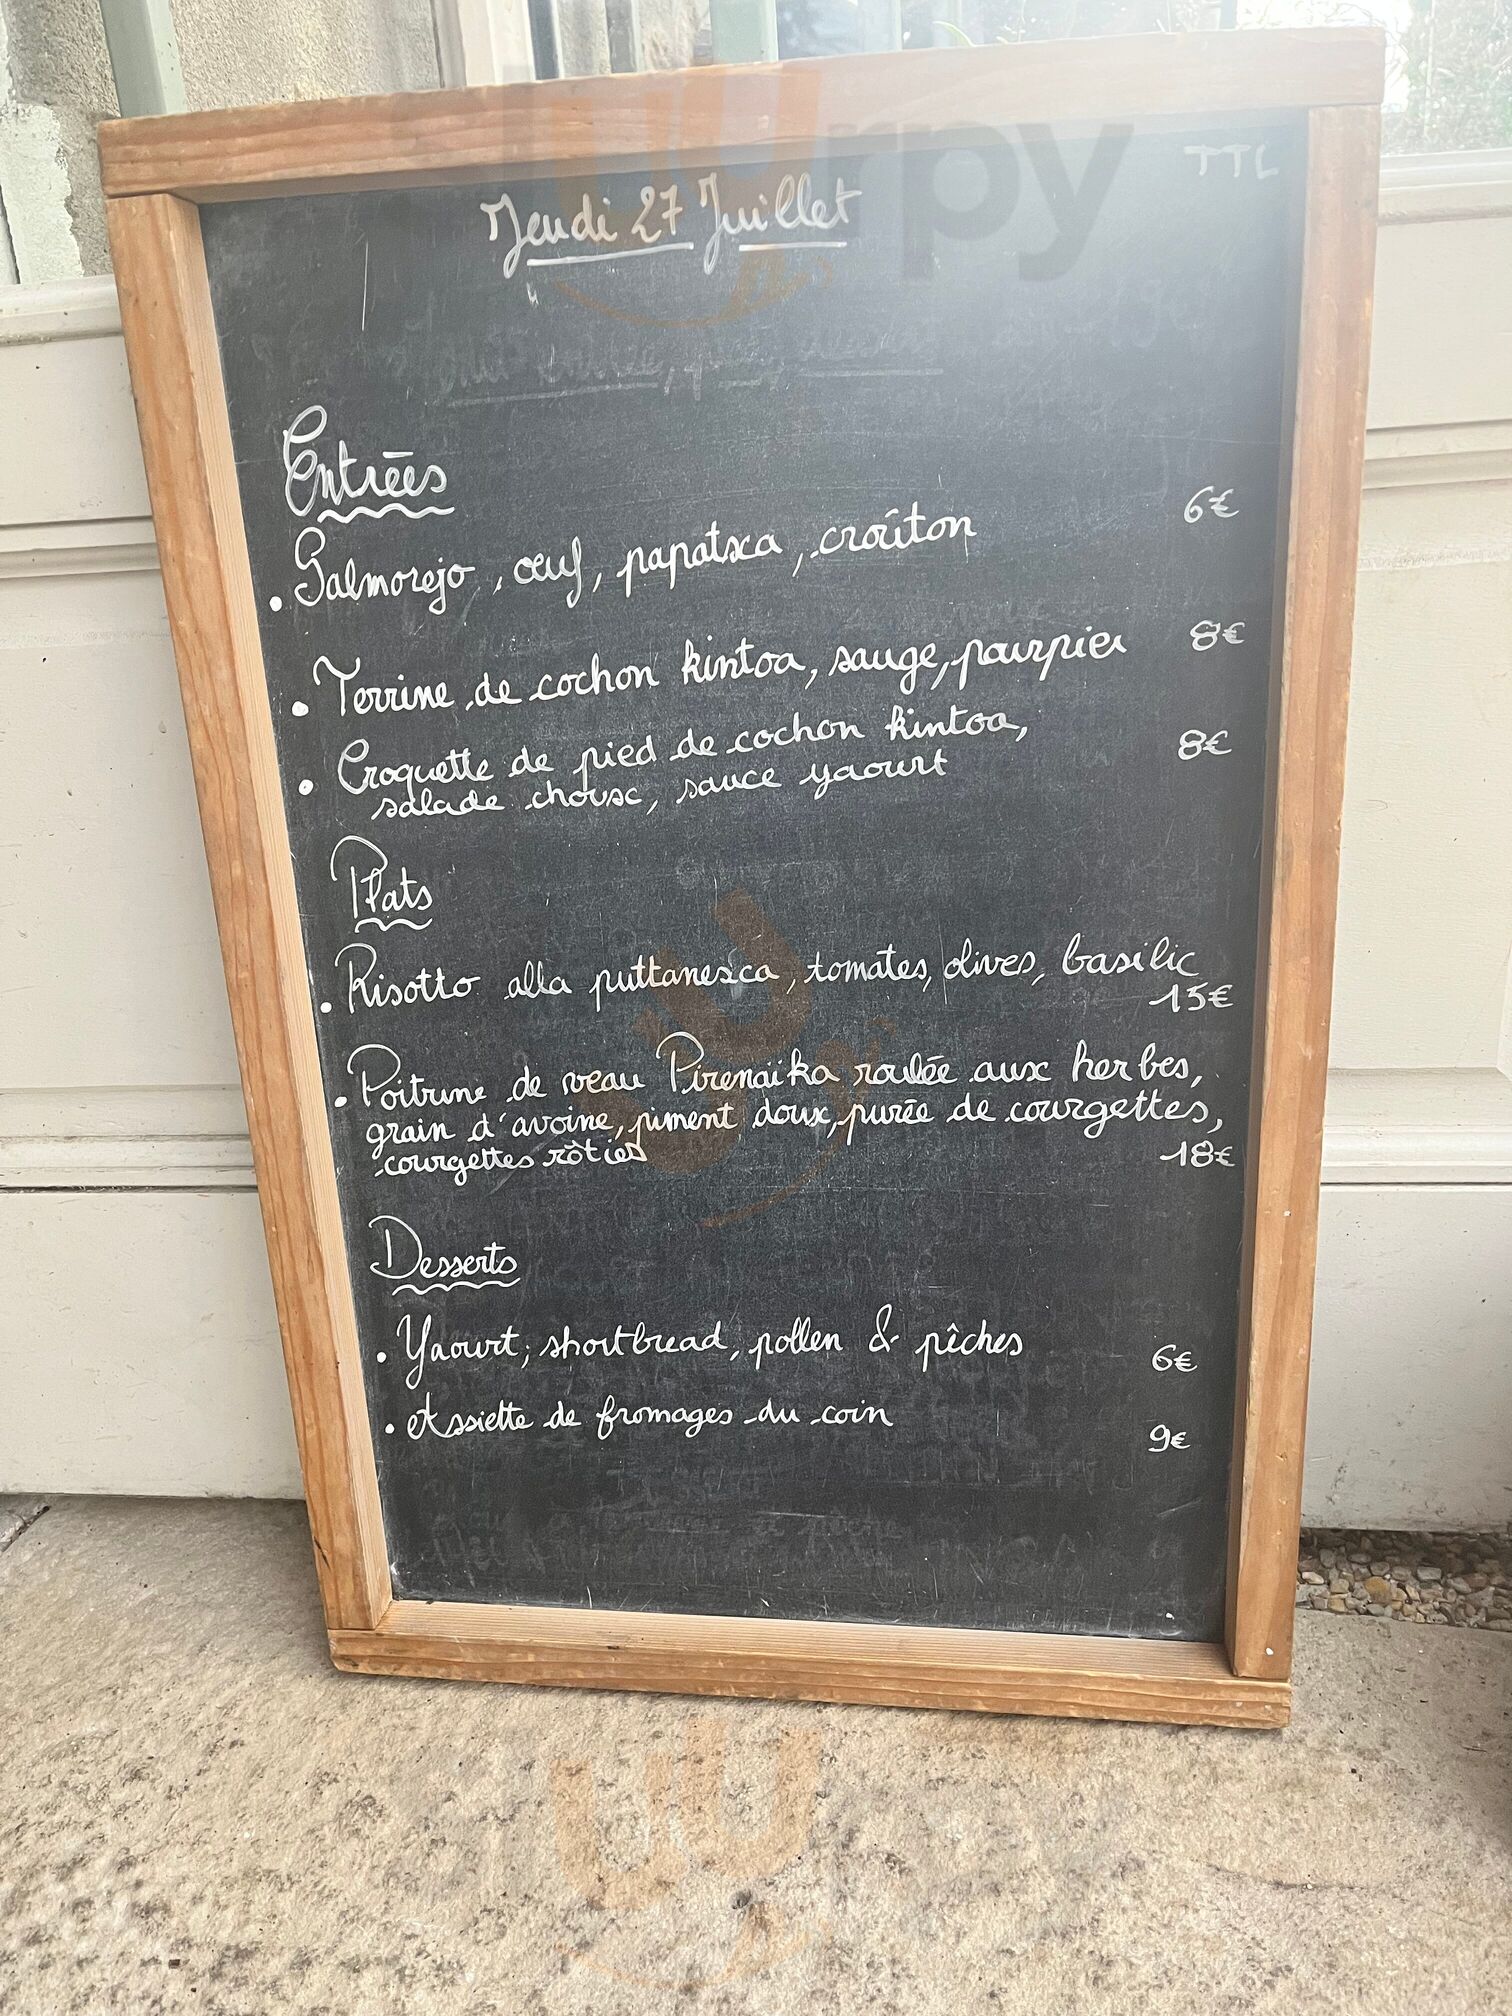 TTL
Jeudi 27 Juillet
Entrées
. Salmorejo, œuf, papatxa, croûton 6€
. Terrine de cochon kintoa, sauge, pourpier 8€
. Croquette de pied de cochon kintoa,
salade choux, sauce yaourt 8€
Plats
. Risotto alla puttanesca, tomates, olives, basilic
15€
. Poitrine de veau Pirenaïka roulée aux herbes,
grain d'avoine, piment doux, purée de courgettes,
courgettes rôties 18€
Desserts
. Yaourt, shortbread, pollen & pêches 6€
. Assiette de fromages du coin 9€